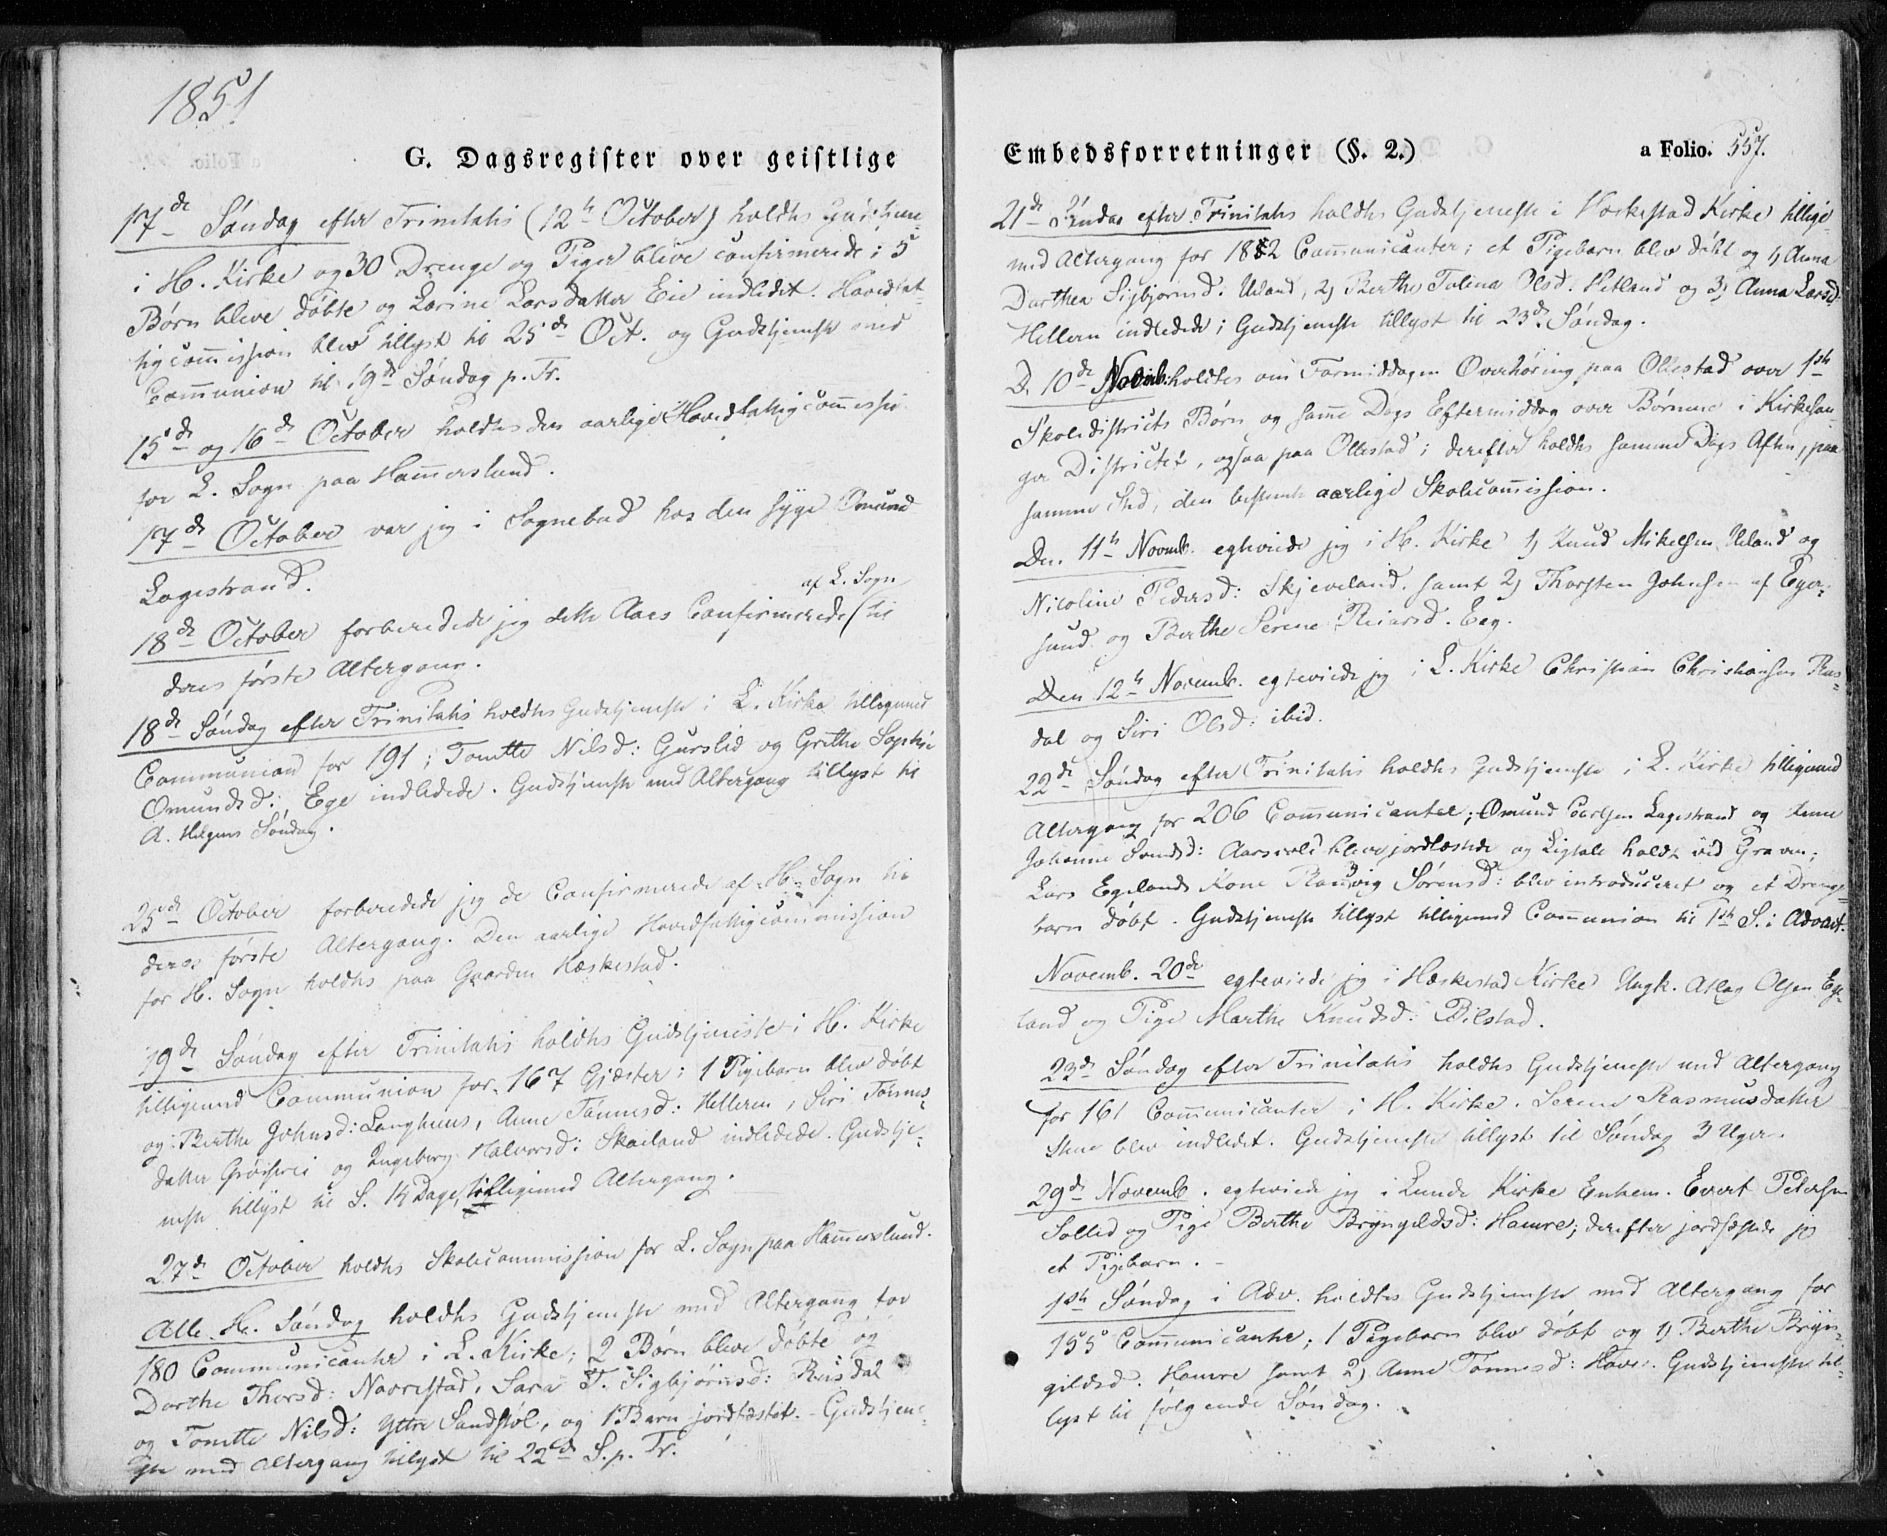 1851
G. Dagsregister over geistlige
17de Søndag efter Trinitatis (12te October) holdtes Gudstjene-
i H. Kirke og 30 Drenge og Piger bleve confirmerede; 5
Børn bleve døbte og Larine Larsdatter Eie indledet. Hovedfat-
tigcommission blev tillyst til 25de Oct. og Gudstjeneste med
Communion til 19de Søndag p. Tr.
15de og 16de October holdtes den aarlige Hovedfattigcommissi-
for L. Sogn paa Hamerslund.
17de October var jeg i Sognebud hos den syge Omund
Lagestrand.
18de October forberedede jeg dette Aars Confirmerede (af L. Sogn til
deres første Altergang.
18de Søndag efter Trinitatis holdtes Gudstjeneste i L. Kirke tilligemed
Communion for 191; Tomtte Nilsd: Gurslid og Grethe Sophie
Omundsd: Ege indledede. Gudstjeneste med Altergang tillyst til
A. Helgens Søndag.
25de October forberedede jeg de Confirmerede af H. Sogn til
deres første Altergang. Den aarlige Hovedfattigcommission
for H. Sogn holdtes paa Gaarden Hæskestad.
19de Søndag efter Trinitatis holdtes Gudstjeneste i H. Kirke
tilligemed Communion for 167 Gjæster; 1 Pigebarn blev døbt
og Berthe Johnsd: Langhuus, Anne Tønnesd: Helleren, Siri Tønnes-
datter Grøsfei og Ingeborg Halvorsd: Skailand indledede. Gudstje-
neste tillyst til S. 14 Dage, tilligemed Altergang.
27de October holdtes Skolecommission for L. Sogn paa Hamerslund.
Alle H. Søndag holdtes Gudstjeneste med Altergang for
180 Communicanter i L. Kirke; 2 Børn bleve døbte og
Dorthe Thorsd: Navrestad, Sara T. Sigbjørnsd: Rusdal
og Tomtte Nilsd: Yttre Sandstøl, og 1 Barn jordfæstet. Gudstjene-
ste med Altergang tillyst til 22de S. p. Tr.
Embedsforretninger (§. 2.) a Folio. 557.
21de Søndag efter Trinitatis holdtes Gudstjeneste i Hæskestad Kirke tillige-
med Altergang for 182 Communicanter; et Pigebarn blev døbt og 1, Anna
Dorthea Sigbjørnsd: Ueland, 2, Berthe Tolina Olsd. Hetland og 3, Anna Larsd
Hellern indledede; Gudstjeneste tillyst til 23de Søndag.
D. 10de Novemb. holdtes om Formiddagen Overhøring paa Ollestad over 1ste
Skoledistricts Børn og samme Dags Eftermiddag over Børnene i Kirkesan-
ger Districtet, ogsaa paa Ollestad; derefter holdtes samme Dags Aften, paa
samme Sted, den bestemte aarlige Skolecommission.
Den 11te Novmb. egteviede jeg i H. Kirke 1, Knud Mikelsen Ueland og
Nicoline Pedersd: Skjeveland, samt 2, Thorsten Johnsen af Eger-
sund og Berthe Serene Reiersd. Eeg.
Den 12te Novemb. egteviede jeg i L. Kirke Christian Christiansen Rus-
dal og Siri Olsd: ibid.
22de Søndag efter Trinitatis holdtes Gudstjeneste i L. Kirke tilligemed
Altergang for 206 Communicanter; Omund Carlsen Lagestrand og Anne
Johanne Aarsvold bleve jordfæstede og Ligtale holdt ved Graven;
Lars Egelands Kone Sørensd: blev introduceret og et Drenge-
barn døbt. Gudstjeneste tillyst tilligemed Communion til 1ste S. i Advent.
Novemb. 20de egteviede jeg i Hæskestad Kirke Ungk. Atlag Olsen Ege-
land og Pige Marthe Knudsd: Bilstad.
23de Søndag efter Trinitatis holdtes Gudstjeneste med Altergang
for 161 Communicanter i H. Kirke. Serene Rasmusdatter
Skue blev indledet. Gudstjeneste tillyst til Søndag 3 Uger.
29de Novemb. egteviede jeg i Lunde Kirke Enkem. Evert Petersen
Sollid og Pige Berthe Bryngeldsd: Hamre; derefter jordfæstede jeg
et Pigebarn.
1ste Søndag i Adv. holdtes Gudstjeneste med Altergang for
155 Communicanter; 1 Pigebarn blev døbt og 1, Berthe Bryn-
gildsd. Hamre samt 2, Anne Tønnesd: Hove. Gudstjeneste til-
lyst til følgende Søndag.